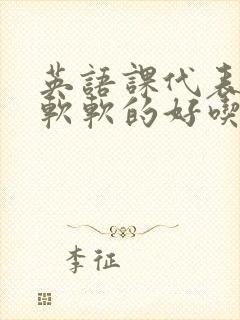 英語課代表
軟軟的好喫
李征